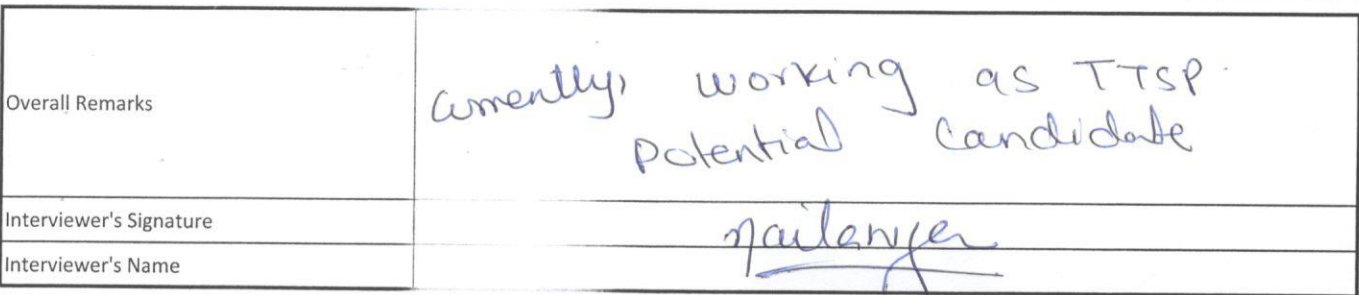 Overall Remarks
Currently, working as TTSP.
Potential Candidate
Interviewer's Signature
Interviewer's Name